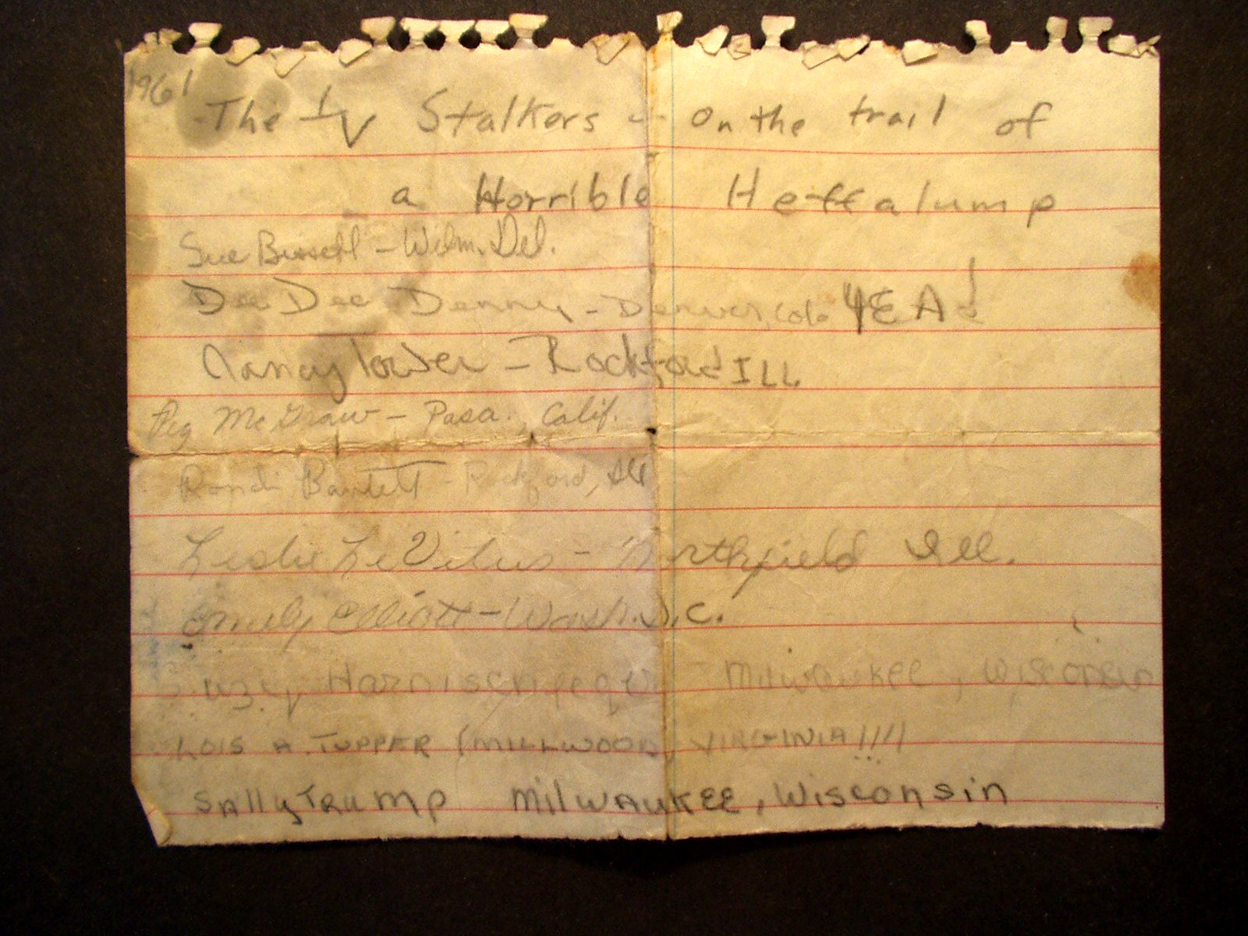 1961
The IV Stalkers - on the trail of
a Horrible Heffalump
Sue - Wilm. Del.
Dee Dee Denny - Denver, Colo YEA!
Nancy Tower - Rockford ILL
Peg McGraw - Pasa., Calif.
Randi Bartlett - Rockford, Ill
Leslie - Northfield Ill.
Emily Elliott - Wash. D.C.
Suzey Harnischfeger - Milwaukee, Wisconsin
LOIS A. TUPPER (MILLWOOD, VIRGINIA!!!!
Sally TRump MilwAuKEE, Wisconsin